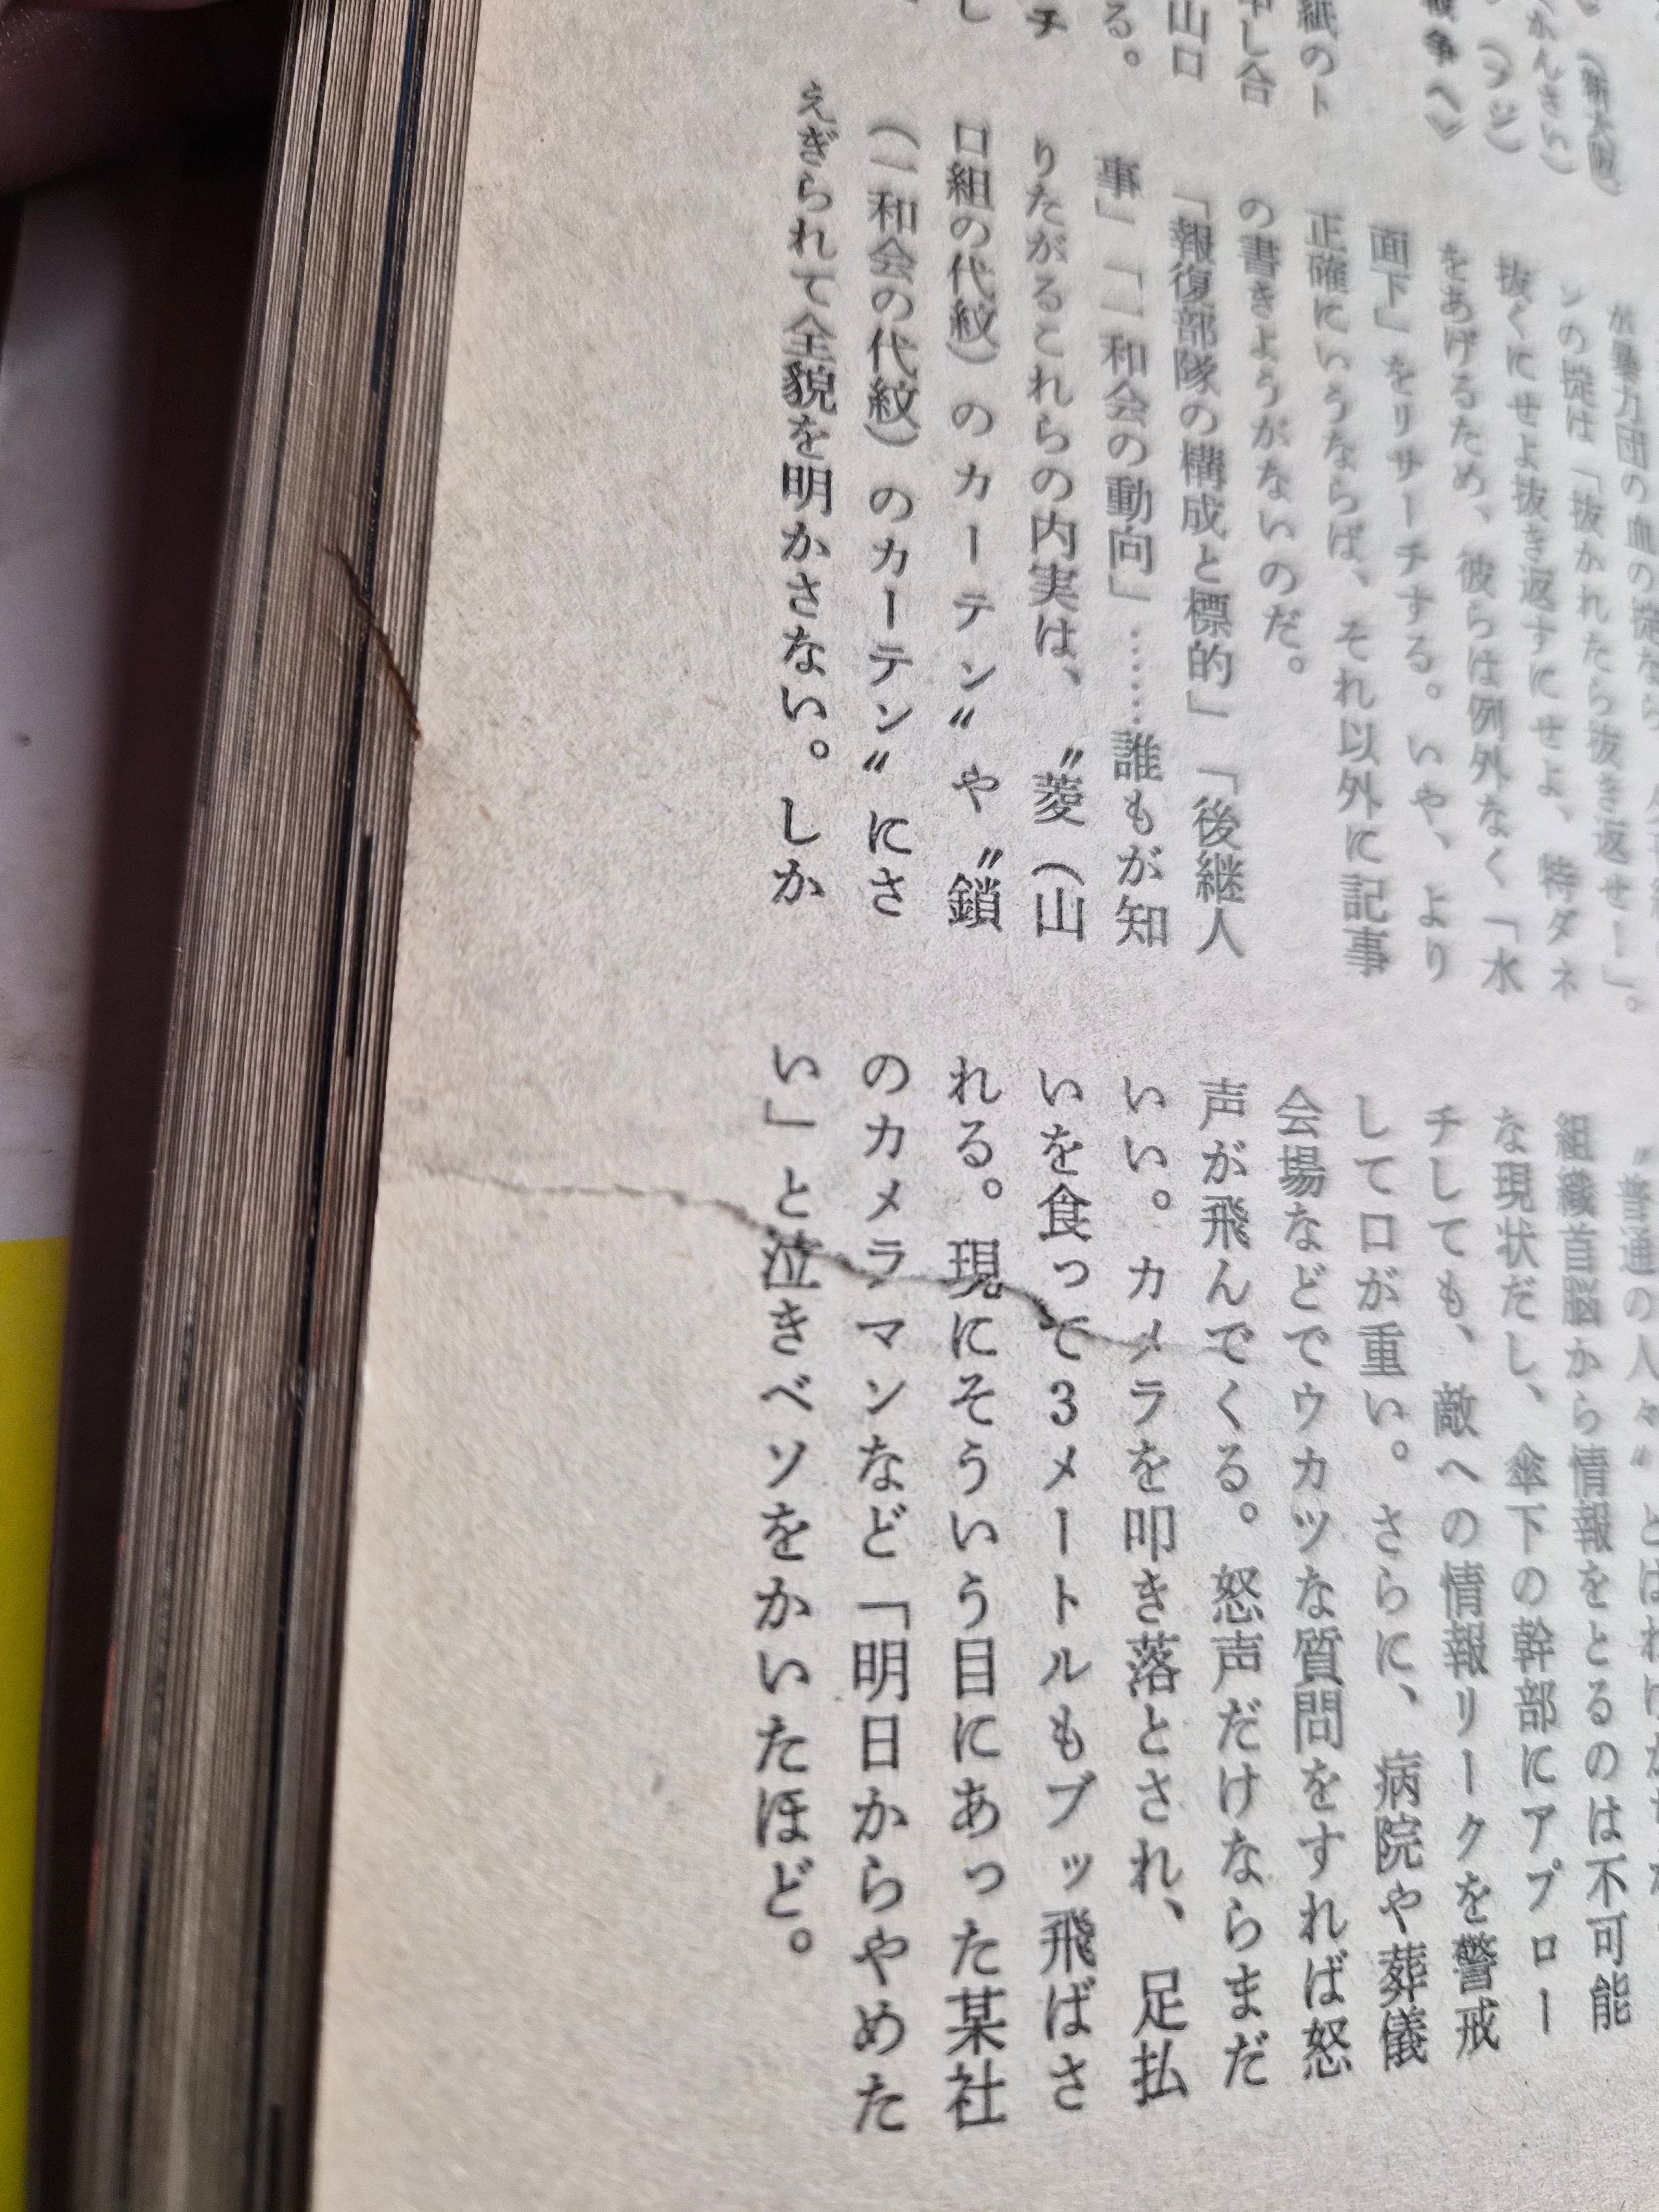 紙のト
申し合
山口
る。
し
チ
が暴力団の血の掟なら
ンの掟は「抜かれたら抜き返せー」。
抜くにせよ抜き返すにせよ、特ダネ
をあげるため、彼らは例外なく「水
面下」をリサーチする。いや、より
正確にいうならば、それ以外に記事
の書きようがないのだ。
「報復部隊の構成と標的」「後継人
事」「一和会の動向」……誰もが知
りたがるこれらの内実は、〝菱（山
口組の代紋）のカーテン〟や〝鎖
（一和会の代紋）のカーテン〟にさ
えぎられて全貌を明かさない。しか
〝普通の人々〟とはわけが
組織首脳から情報をとるのは不可能
な現状だし、傘下の幹部にアプロー
チしても、敵への情報リークを警戒
して口が重い。さらに、病院や葬儀
会場などでウカツな質問をすれば怒
声が飛んでくる。怒声だけならまだ
いい。カメラを叩き落とされ、足払
いを食って3メートルもブッ飛ばさ
れる。現にそういう目にあった某社
のカメラマンなど「明日からやめた
い」と泣きベソをかいたほど。